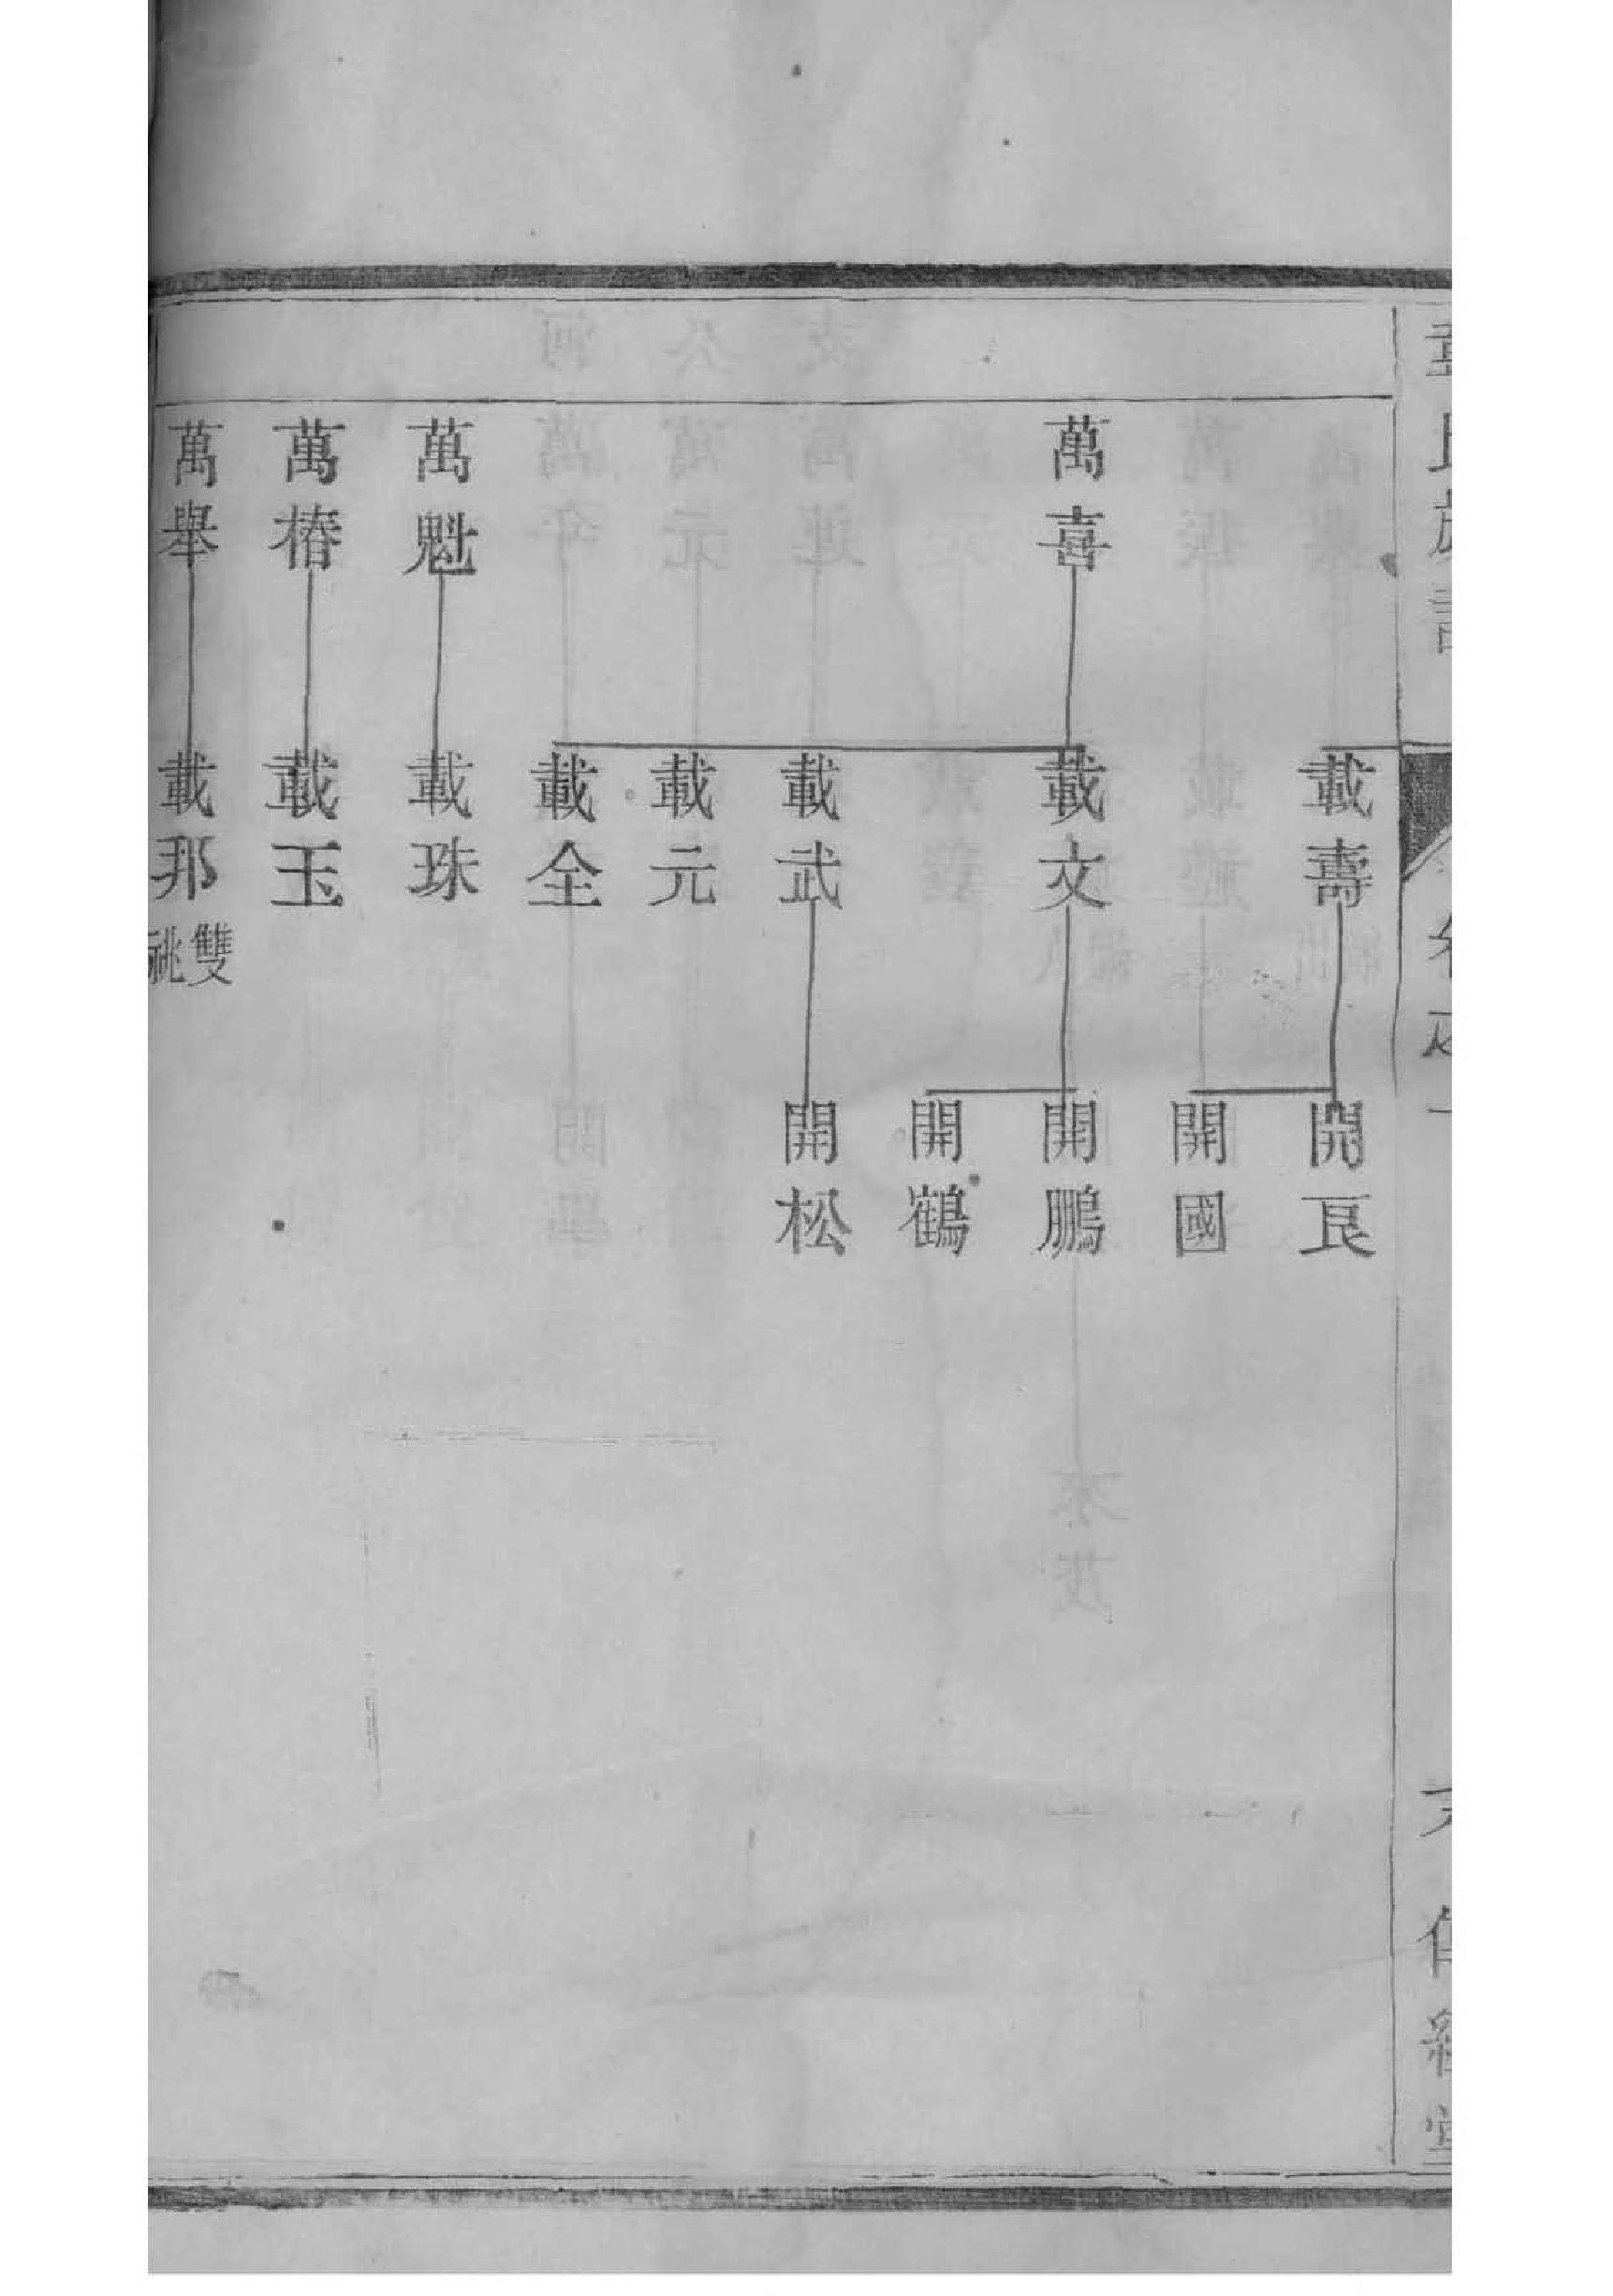 載壽
開良
開國
萬喜
載文
開鵬
開鶴
載武
開松
載元
載全
萬魁
載珠
萬椿
載玉
萬舉
載邦
雙
祧